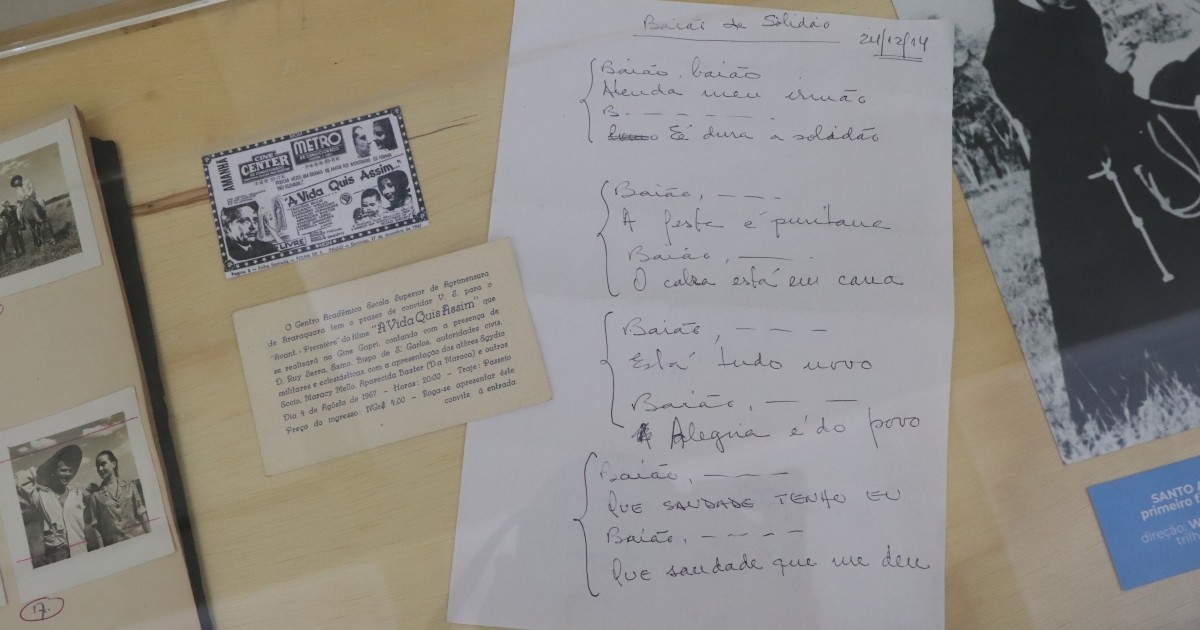 AMANHÃ
CINE
CENTER
METRO
"A Vida Quis Assim...
LIVRE
O Centro Acadêmico Escola Superior de Agrimensura
de Araraquara tem o prazer de convidar V. S. para o
"Avant-Première" do filme "A Vida Quis Assim" que
se realizará no Cine Capri, contando com a presença de
D. Ruy Serra, Exmo. Bispo de S. Carlos, autoridades civis,
militares e eclesiásticas, com a apresentação dos atôres Egydio
Eccio, Maracy Mello, Aparecida Baxter (D.a Maroca) e outros
Dia 4 de Agôsto de 1967 - Horas: 20:00 - Traje: Passeio
Preço do ingresso: NCr$ 4,00 - Roga-se apresentar êste
convite à entrada.
17.
Baião de Solidão
24/12/14
Baião, baião
Atenda meu irmão
B. - - - - - .
É dura a solidão
Baião, - - - .
A festa é puritana
Baião, —— .
O calsa está em cana
Baião, - - -
Está tudo novo
Baião, — —
Alegria é do povo
Baião, - - - -
QUE SAUDADE TENHO EU
Baião, - - - -
QUE saudade que me deu
SANTO A
primeiro f
direção: W
trilh